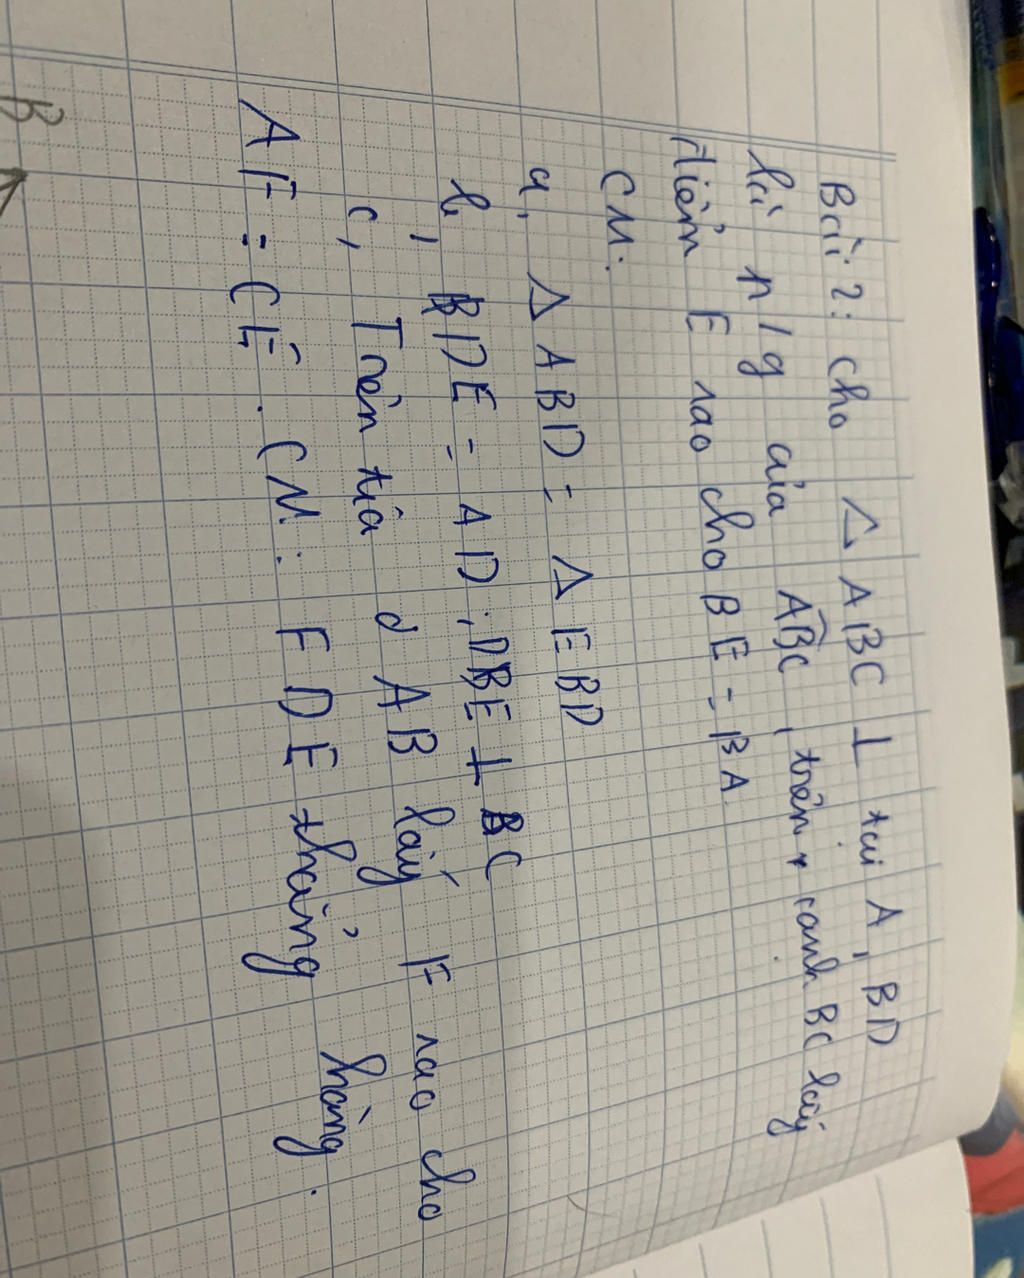 Bài 2: cho △ ABC ⊥ tại A, BD
là p/g của ABC, trên cạnh BC lấy
điểm E sao cho BE = BA.
CM:
a, △ ABD = △ EBD
b, DE = AD; DE ⊥ BC
c, Trên tia đ AB lấy F sao cho
AF = CE. CM: F D E thẳng hàng.
B